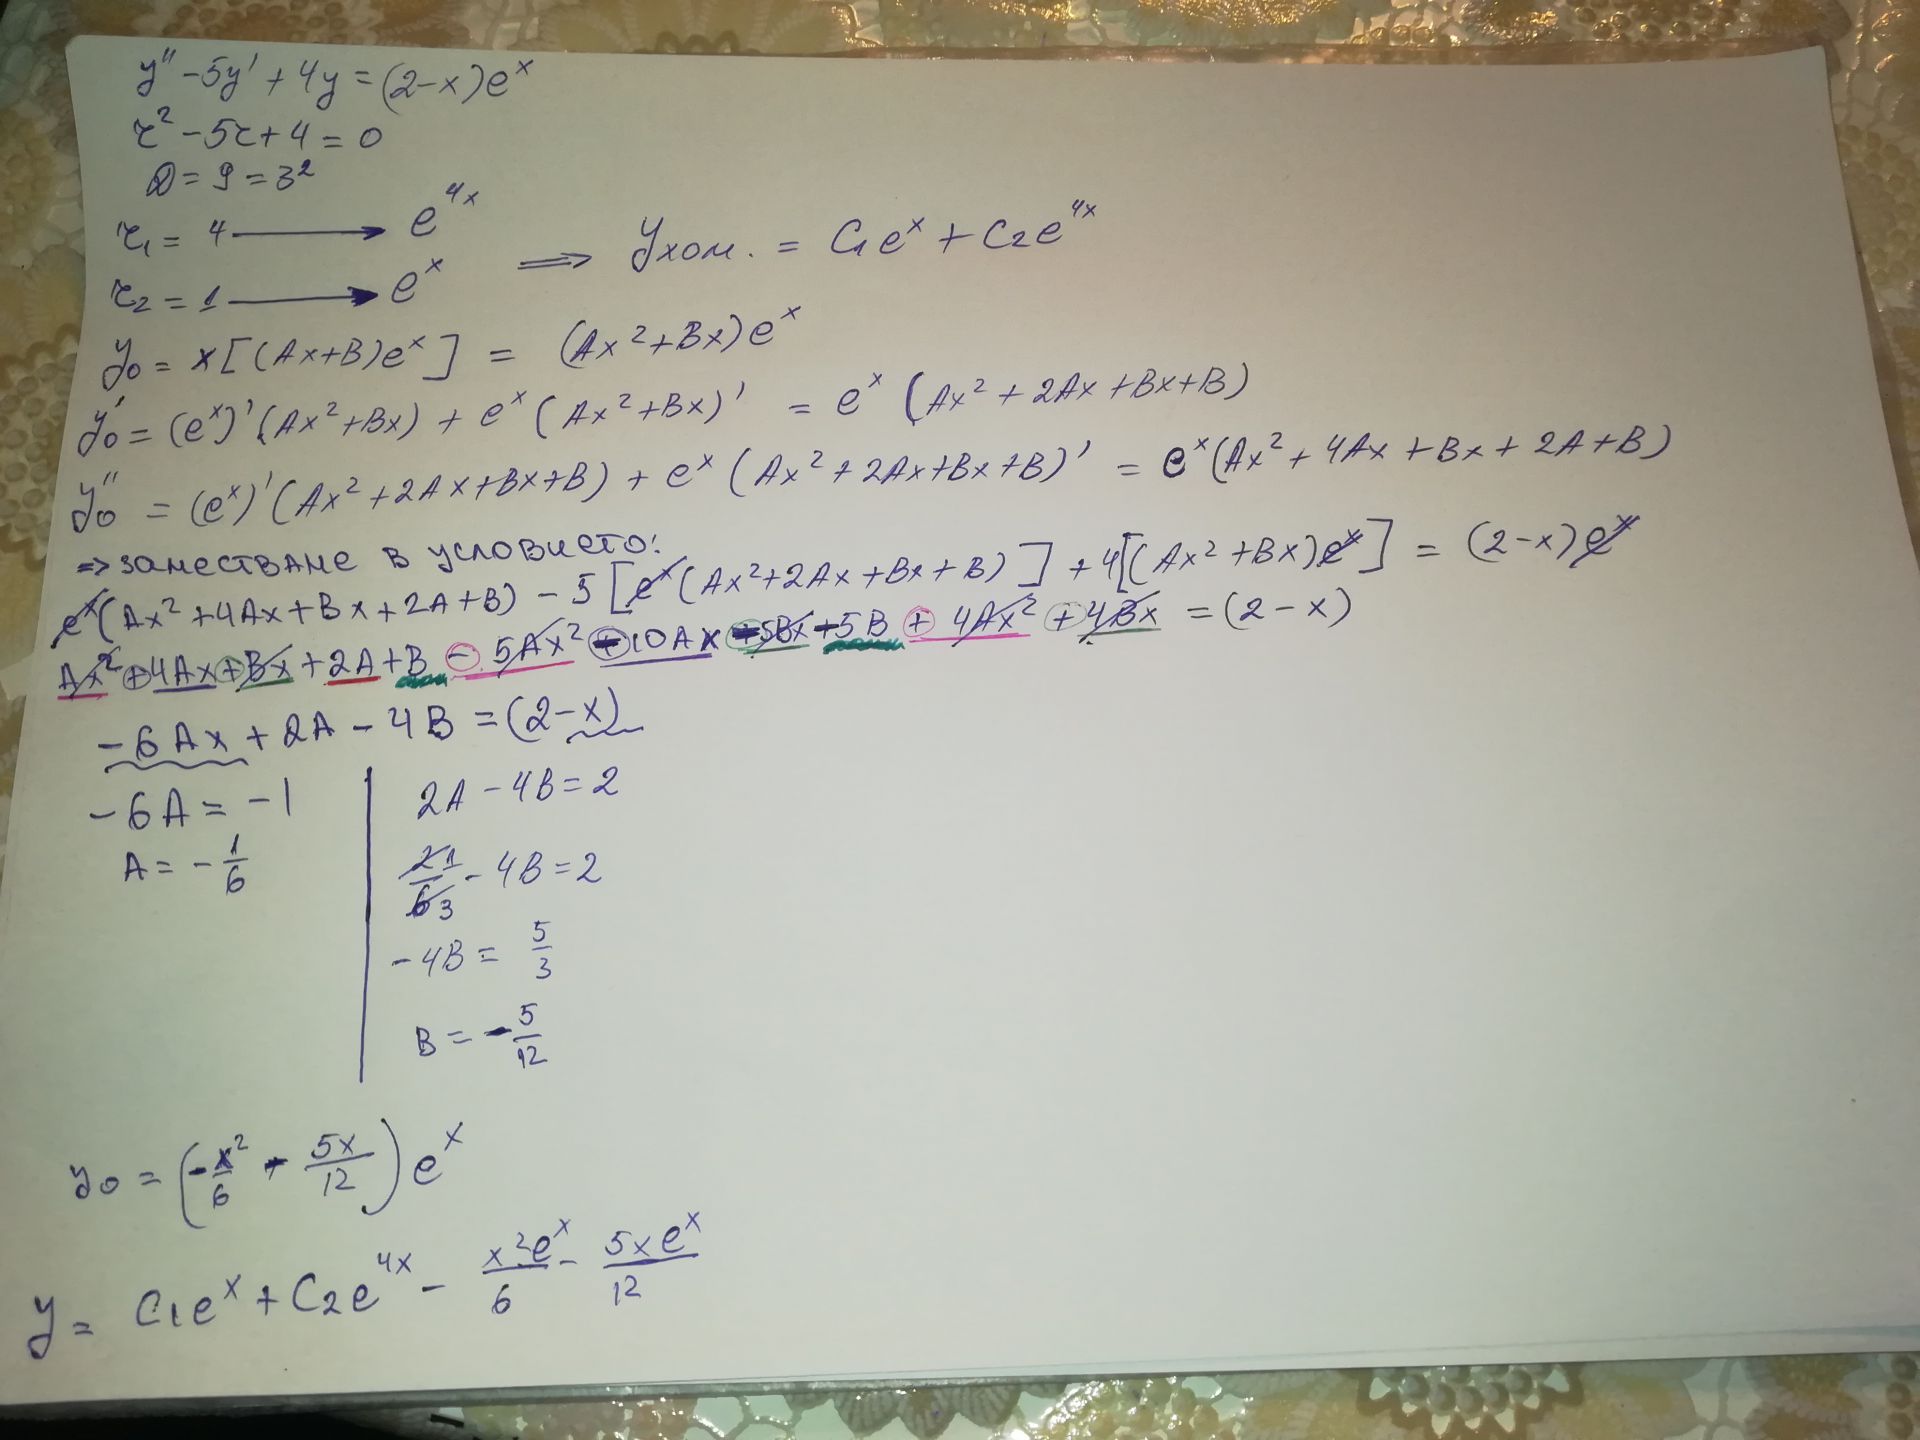 y'' - 5y' + 4y = (2-x)e^x
r² - 5r + 4 = 0
D = 9 = 3²
r₁ = 4 ⟶ e^4x
r₂ = 1 ⟶ e^x ⟹ yхом. = C₁e^x + C₂e^4x
y₀ = x[(Ax+B)e^x] = (Ax²+Bx)e^x
y₀' = (e^x)'(Ax²+Bx) + e^x(Ax²+Bx)' = e^x(Ax²+2Ax+Bx+B)
y₀'' = (e^x)'(Ax²+2Ax+Bx+B) + e^x(Ax²+2Ax+Bx+B)' = e^x(Ax²+4Ax+Bx+2A+B)
=> заместваме в условието:
e^x(Ax²+4Ax+Bx+2A+B) - 5[e^x(Ax²+2Ax+Bx+B)] + 4[(Ax²+Bx)e^x] = (2-x)e^x
Ax²+4Ax+Bx+2A+B - 5Ax² - 10Ax - 5Bx - 5B + 4Ax² + 4Bx = (2-x)
-6Ax + 2A - 4B = (2-x)
-6A = -1
A = -1/6
2A - 4B = 2
21/63 - 4B = 2
-4B = 5/3
B = -5/12
y₀ = (-x²/6 - 5x/12)e^x
y = C₁e^x + C₂e^4x - x²e^x/6 - 5xe^x/12